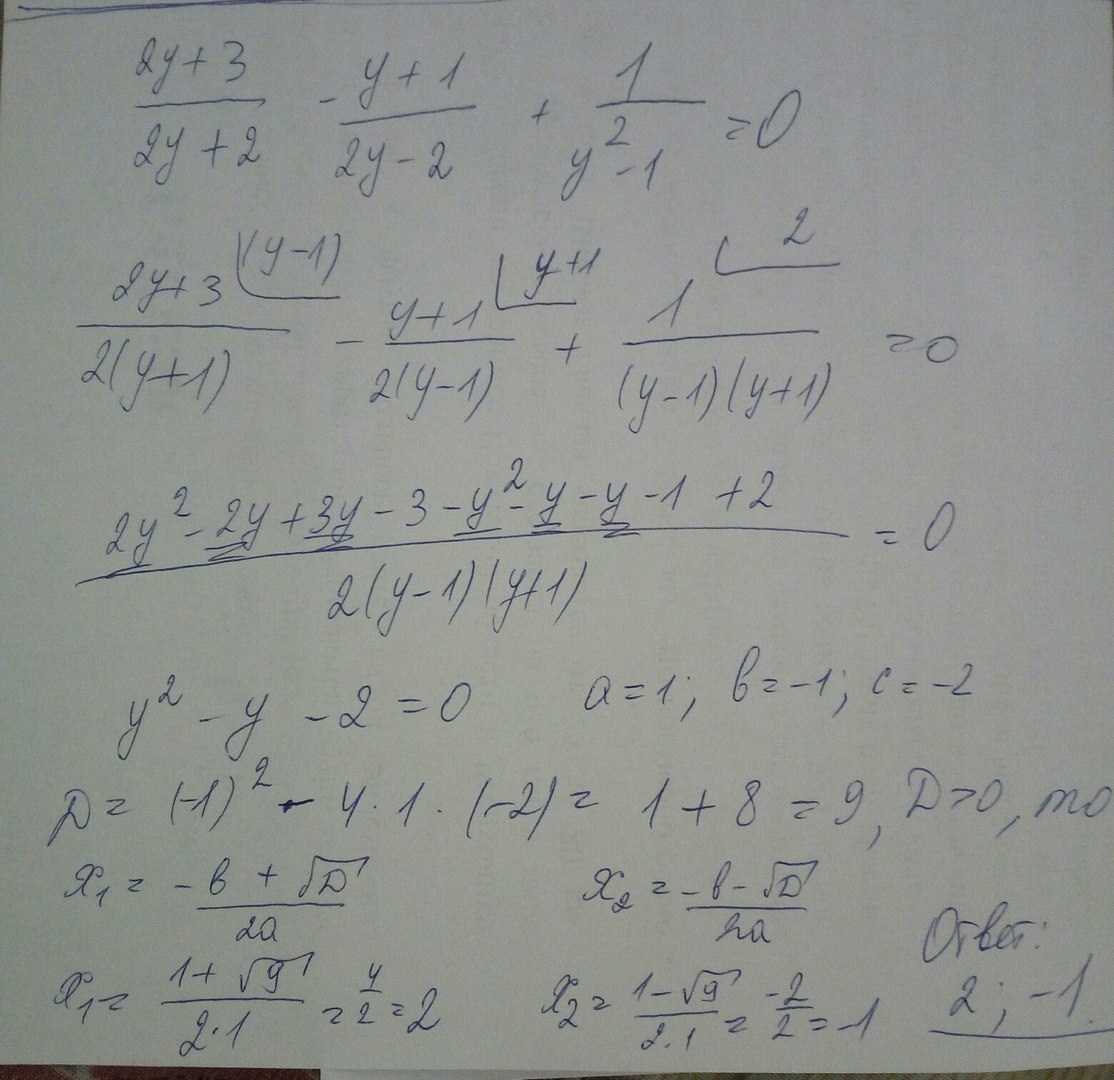 (2y+3)/(2y+2) - (y+1)/(2y-2) + 1/(y²-1) = 0
(2y+3)/(2(y+1)) ⌊(y-1) - (y+1)/(2(y-1)) ⌊y+1 + 1/((y-1)(y+1)) ⌊2 = 0
(2y²-2y+3y-3-y²-y-y-1+2)/(2(y-1)(y+1)) = 0
y²-y-2=0 a=1; в=-1; c=-2
D=(-1)²-4·1·(-2)=1+8=9, D>0, то
x₁=(-в+√D)/(2a) x₂=(-в-√D)/(2a)
Ответ:
x₁=(1+√9)/(2·1)=4/2=2 x₂=(1-√9)/(2·1)=-2/2=-1 2; -1.